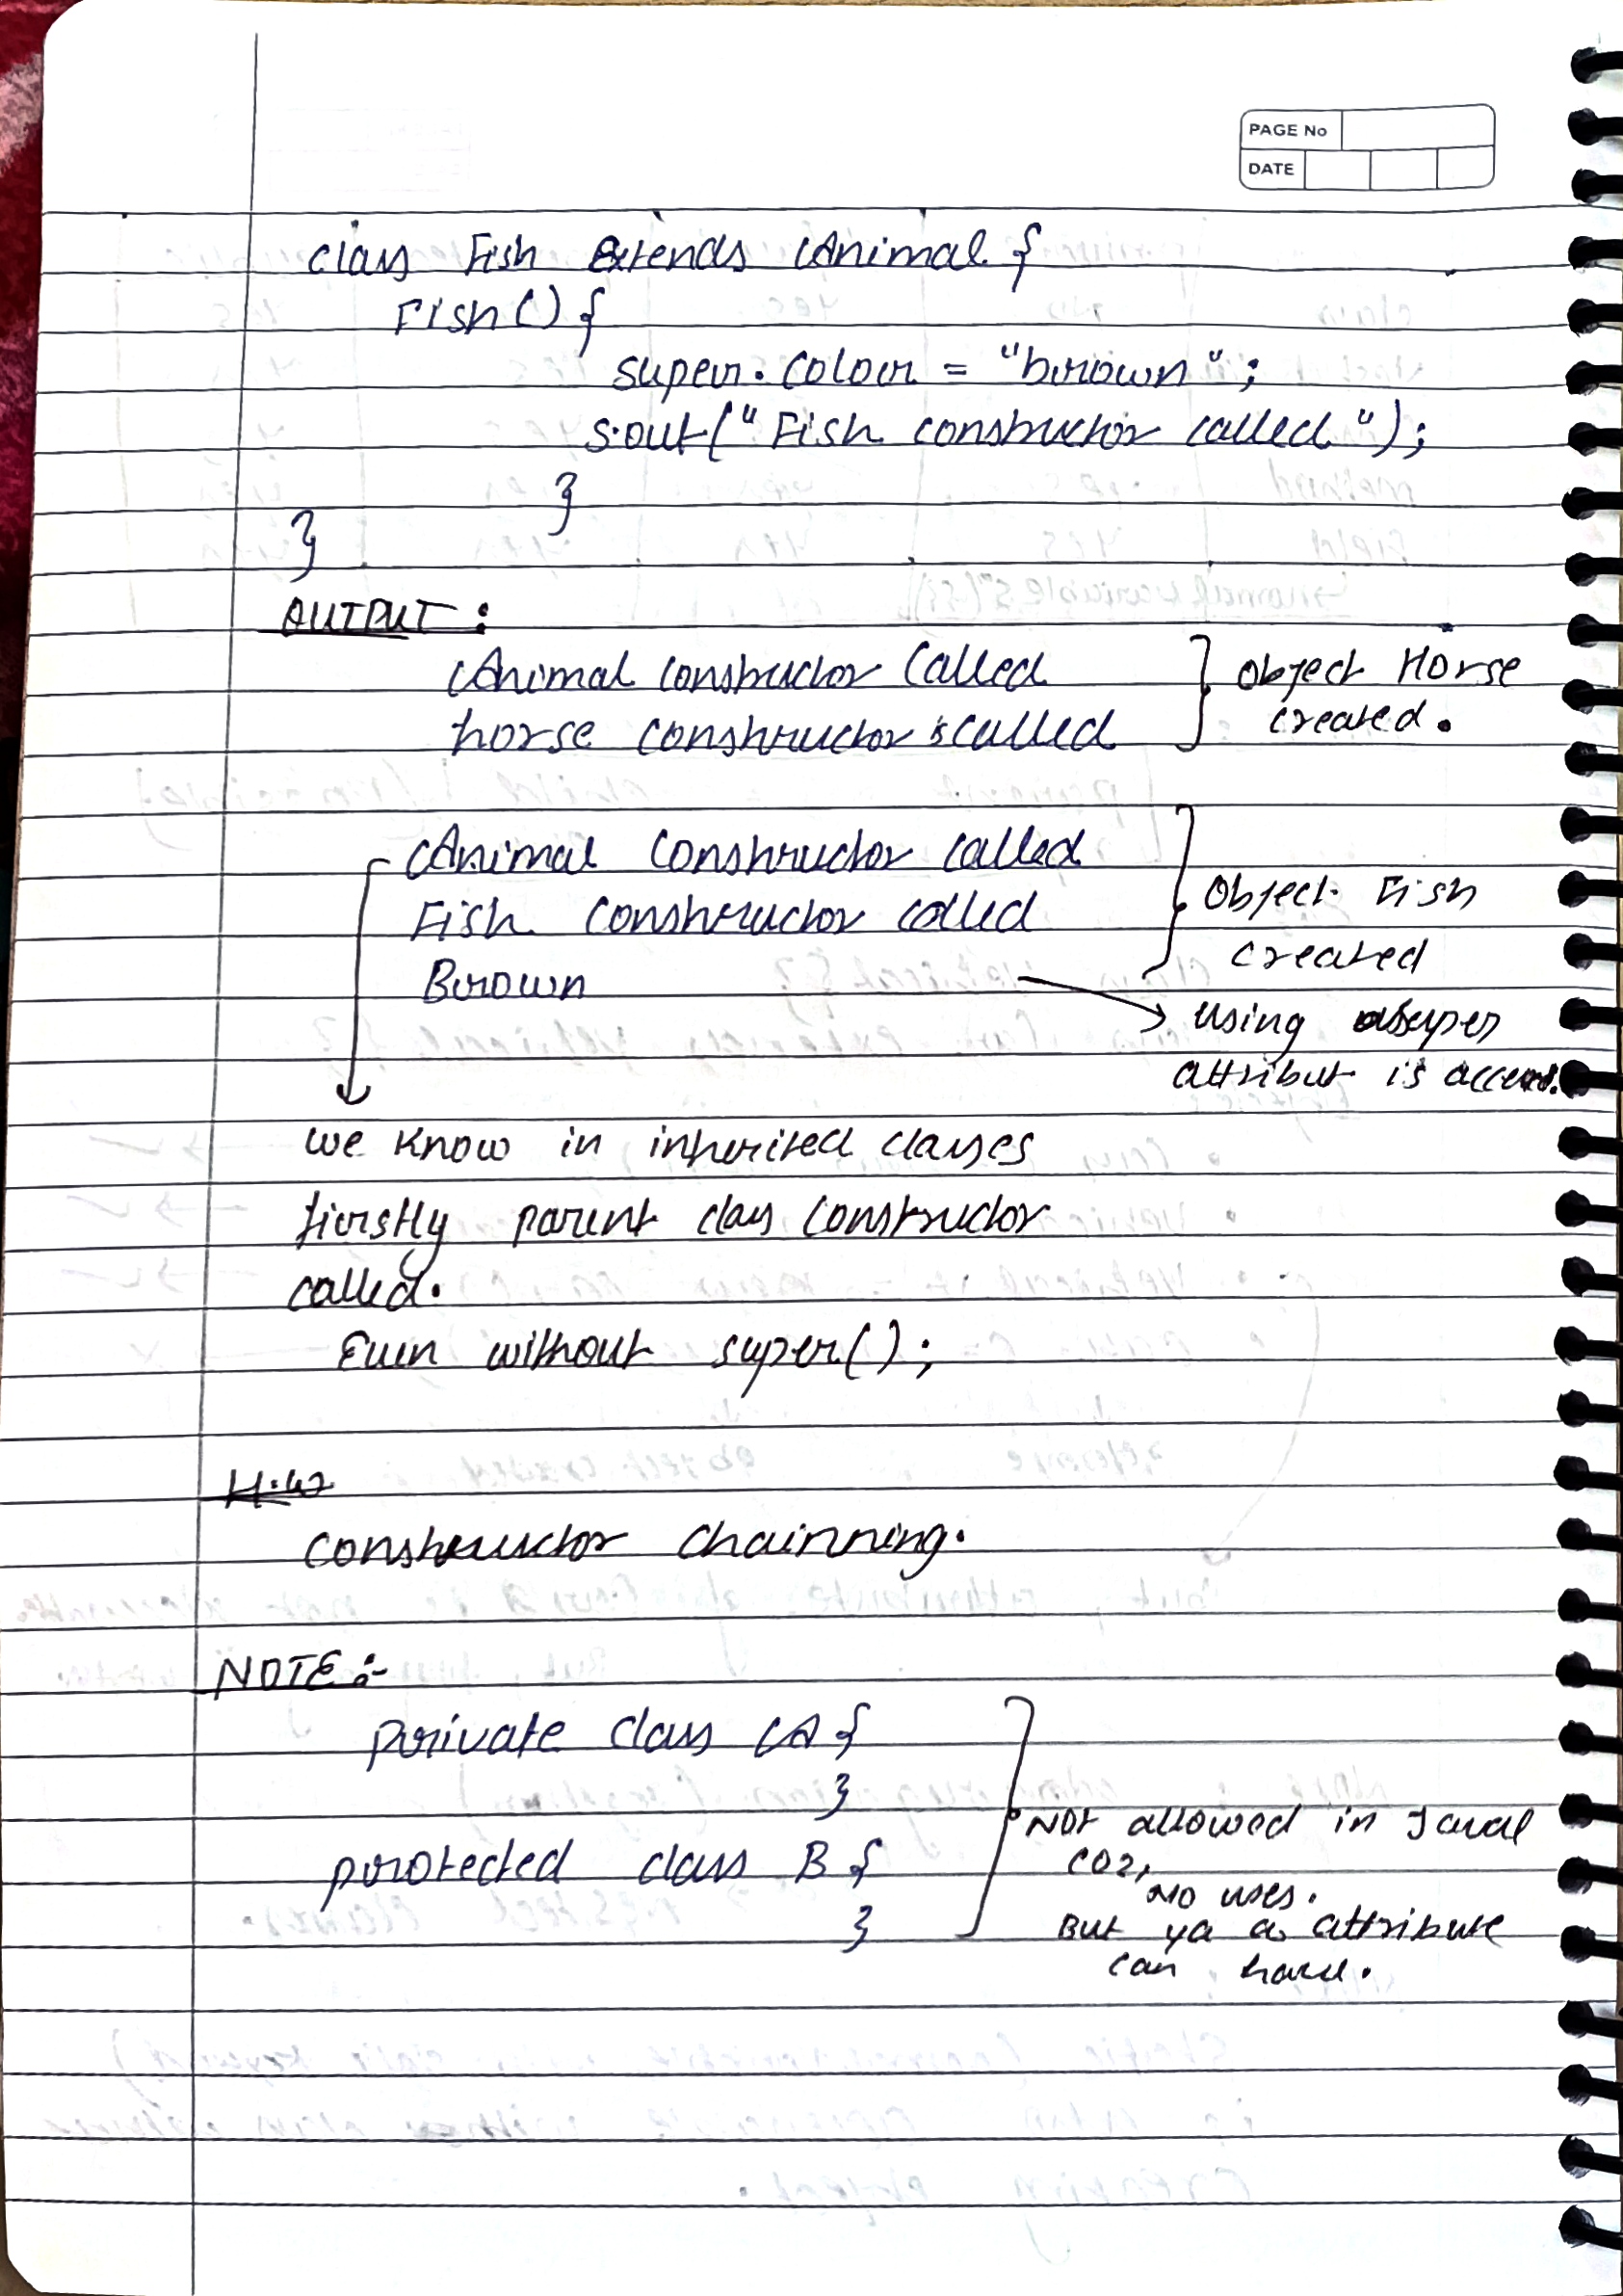 PAGE No
DATE
class Fish Extends Animal {
Fish() {
super.colour = "brown";
s.out("Fish constructor called");
}
}
OUTPUT :
Animal constructor called
horse constructor is called
} Object Horse
created.
Animal constructor called
Fish constructor called
Brown
} Object Fish
created
→ using super
attribut is
we know in inherited classes
firstly parent class constructor
called.
Even without super();
H.W
constructor chainning.
NOTE :-
private class A {
}
protected class B {
}
Not allowed in Java
coz,
no uses.
But ya a attribute
can have.